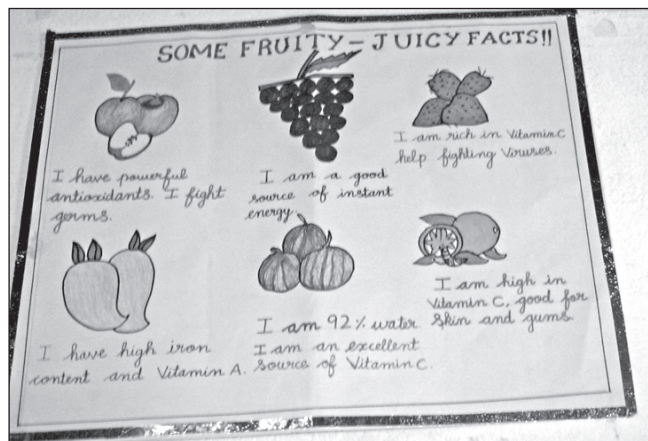 SOME FRUITY – JUICY FACTS!!
I have powerful
antioxidants. I fight
germs.
I am a good
source of instant
energy.
I am rich in Vitamin C
help fighting Viruses.
I have high iron
content and Vitamin A.
I am 92% water
I am an excellent
source of Vitamin C.
I am high in
Vitamin C, good for
skin and gums.